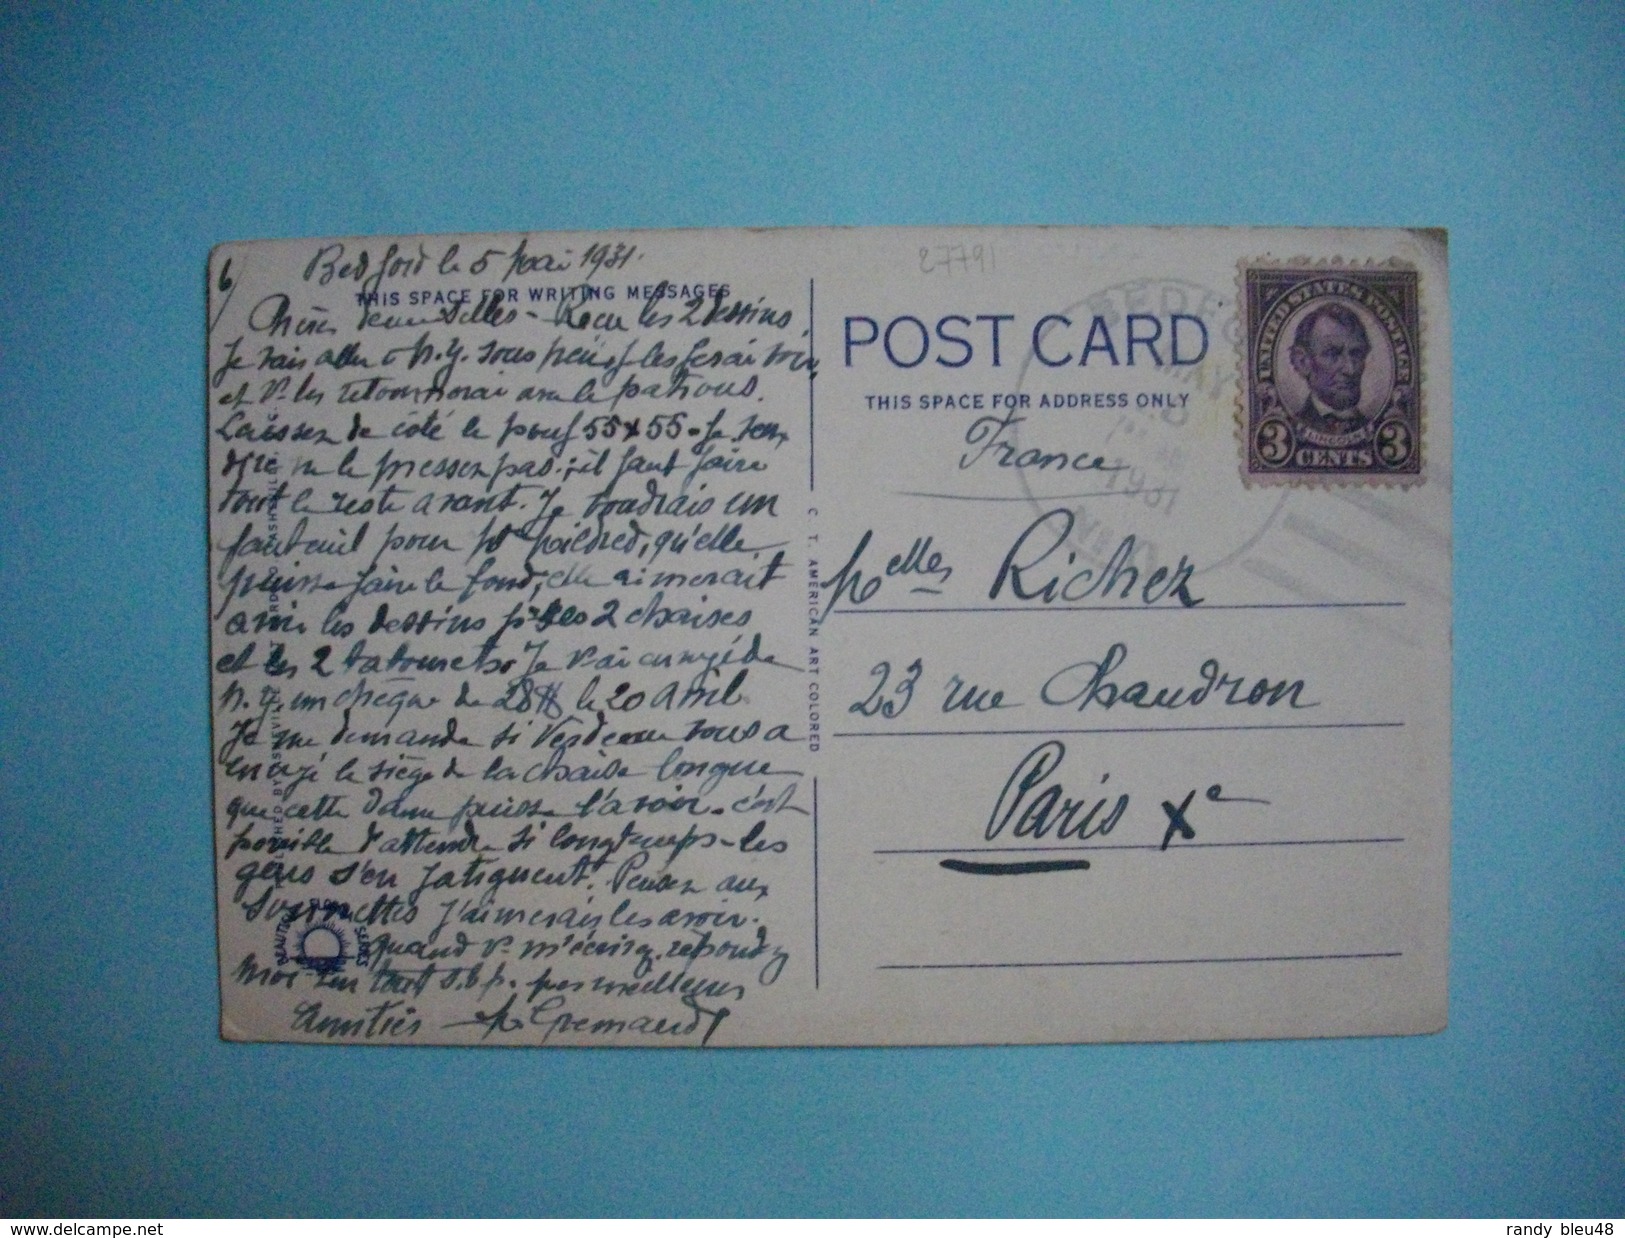 6/
Bedford le 5 Mai 1931.
THIS SPACE FOR WRITING MESSAGES
Chères Demoiselles - Reçu les 2 dessins,
Je vais aller à N.Y. sous peu, les ferai voir
et v. les retournerai avec le patrons.
Laissez de côté le pouf 55 x 55 - Je
ne le pressez pas; il faut faire
tout le reste avant. Je voudrais un
fauteuil pour Mildred, qu'elle
puisse faire le fond, elle aimerait
avoir les dessins pr ses 2 chaises
et les 2 tabourets. Je v. ai envoyé de
N.Y. un chèque de 28$ le 20 avril
Je me demande si vous a
envoyé le siège de la chaise longue
que cette dame puisse l'avoir - c'est
possible d'attendre si longtemps - les
gens s'en fatiguent. Pensez aux
J'aimerais les avoir.
Quand v. m'écrivez, répondez
moi tout s.v.p. mes meilleures
Amitiés
27791
POST CARD
THIS SPACE FOR ADDRESS ONLY
France
Melles Richez
23 rue Chaudron
Paris Xe
C. T. AMERICAN ART COLORED
BEDFORD
MAY
1931
UNITED STATES POSTAGE
LINCOLN
3 CENTS 3
www.delcampe.net
randy bleu48